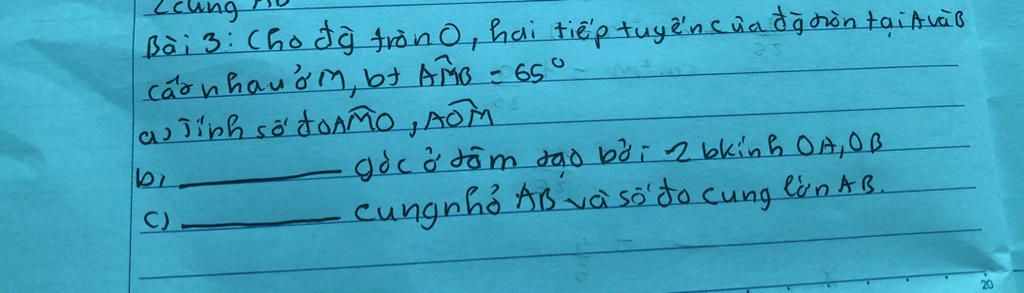 2 cung AB
Bài 3: Cho đg tròn O, hai tiếp tuyến của đg tròn tại A và B
cắt nhau ở M, bt AM̂B = 65°
a) Tính số đo AM̂O, AÔM
b) ______ góc ở tâm tạo bởi 2 bkính OA, OB
c) ______ cung nhỏ AB và số đo cung lớn AB.
20